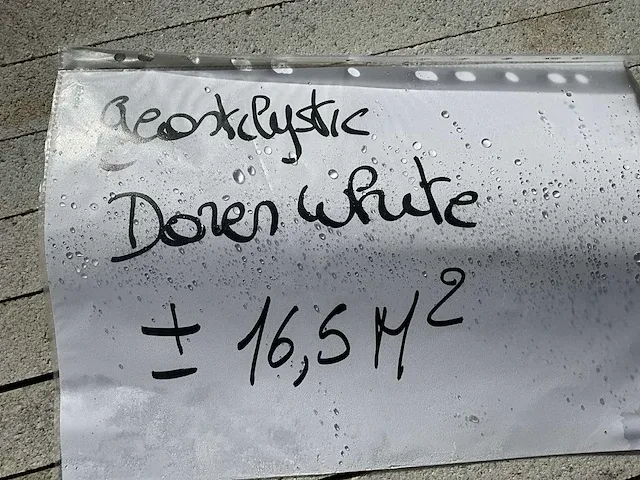 Geostylistic
Doren White
± 16,5 M²